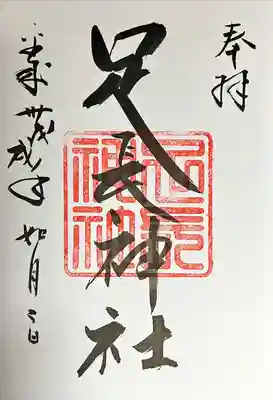 奉拝
足長神社
足長神社
平成卅戊戌年如月二日